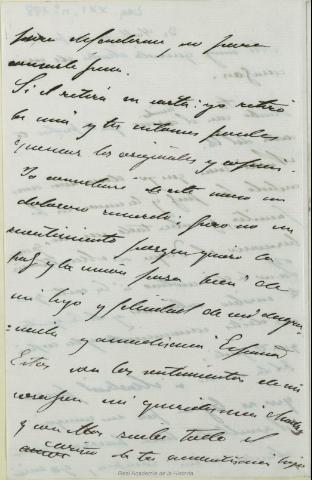 para defenderme, no para
Si él retira su carta: yo retiro
la mía y tu entonces puedes
quemar los originales y copias.
Yo conservaré de este caso un
doloroso recuerdo; pero no un
resentimiento porque quiero la
paz y la unión para bien de
mi hijo y felicidad de mi
y amadísima España
Estos son los sentimientos de mi
corazón mi queridísima Madre
y con ellos sabes todo el
cariño de tu amantísima hija
Real Academia de la Historia